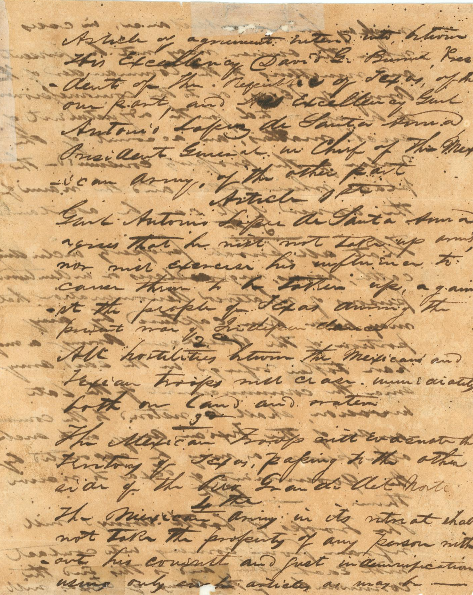 Article of agreement, entered into between
His Excellency David G. Burnet Presi
-dent of the Republic of Texas, of the
one part, and His Excellency Genl
Antonio Lopez de Santa Anna
President General in Chief of the Mex
-ican Army, of the other part
Article 1st
Genl Antonio Lopez de Santa Anna
agrees that he will not take up arms
nor will exercise his influence to
cause them to be taken up, again
-st the people of Texas during the
present war of
2
All hostilities between the Mexican and
Texian troops will cease immediately
both on land and water
3
The Mexican troops will evacuate the
Territory of Texas, passing to the other
side of the Rio Grande del Norte
4th
The Mexican Army in its retreat shall
not take the property of any person with
-out his consent and just indemnification
using only such articles as may be